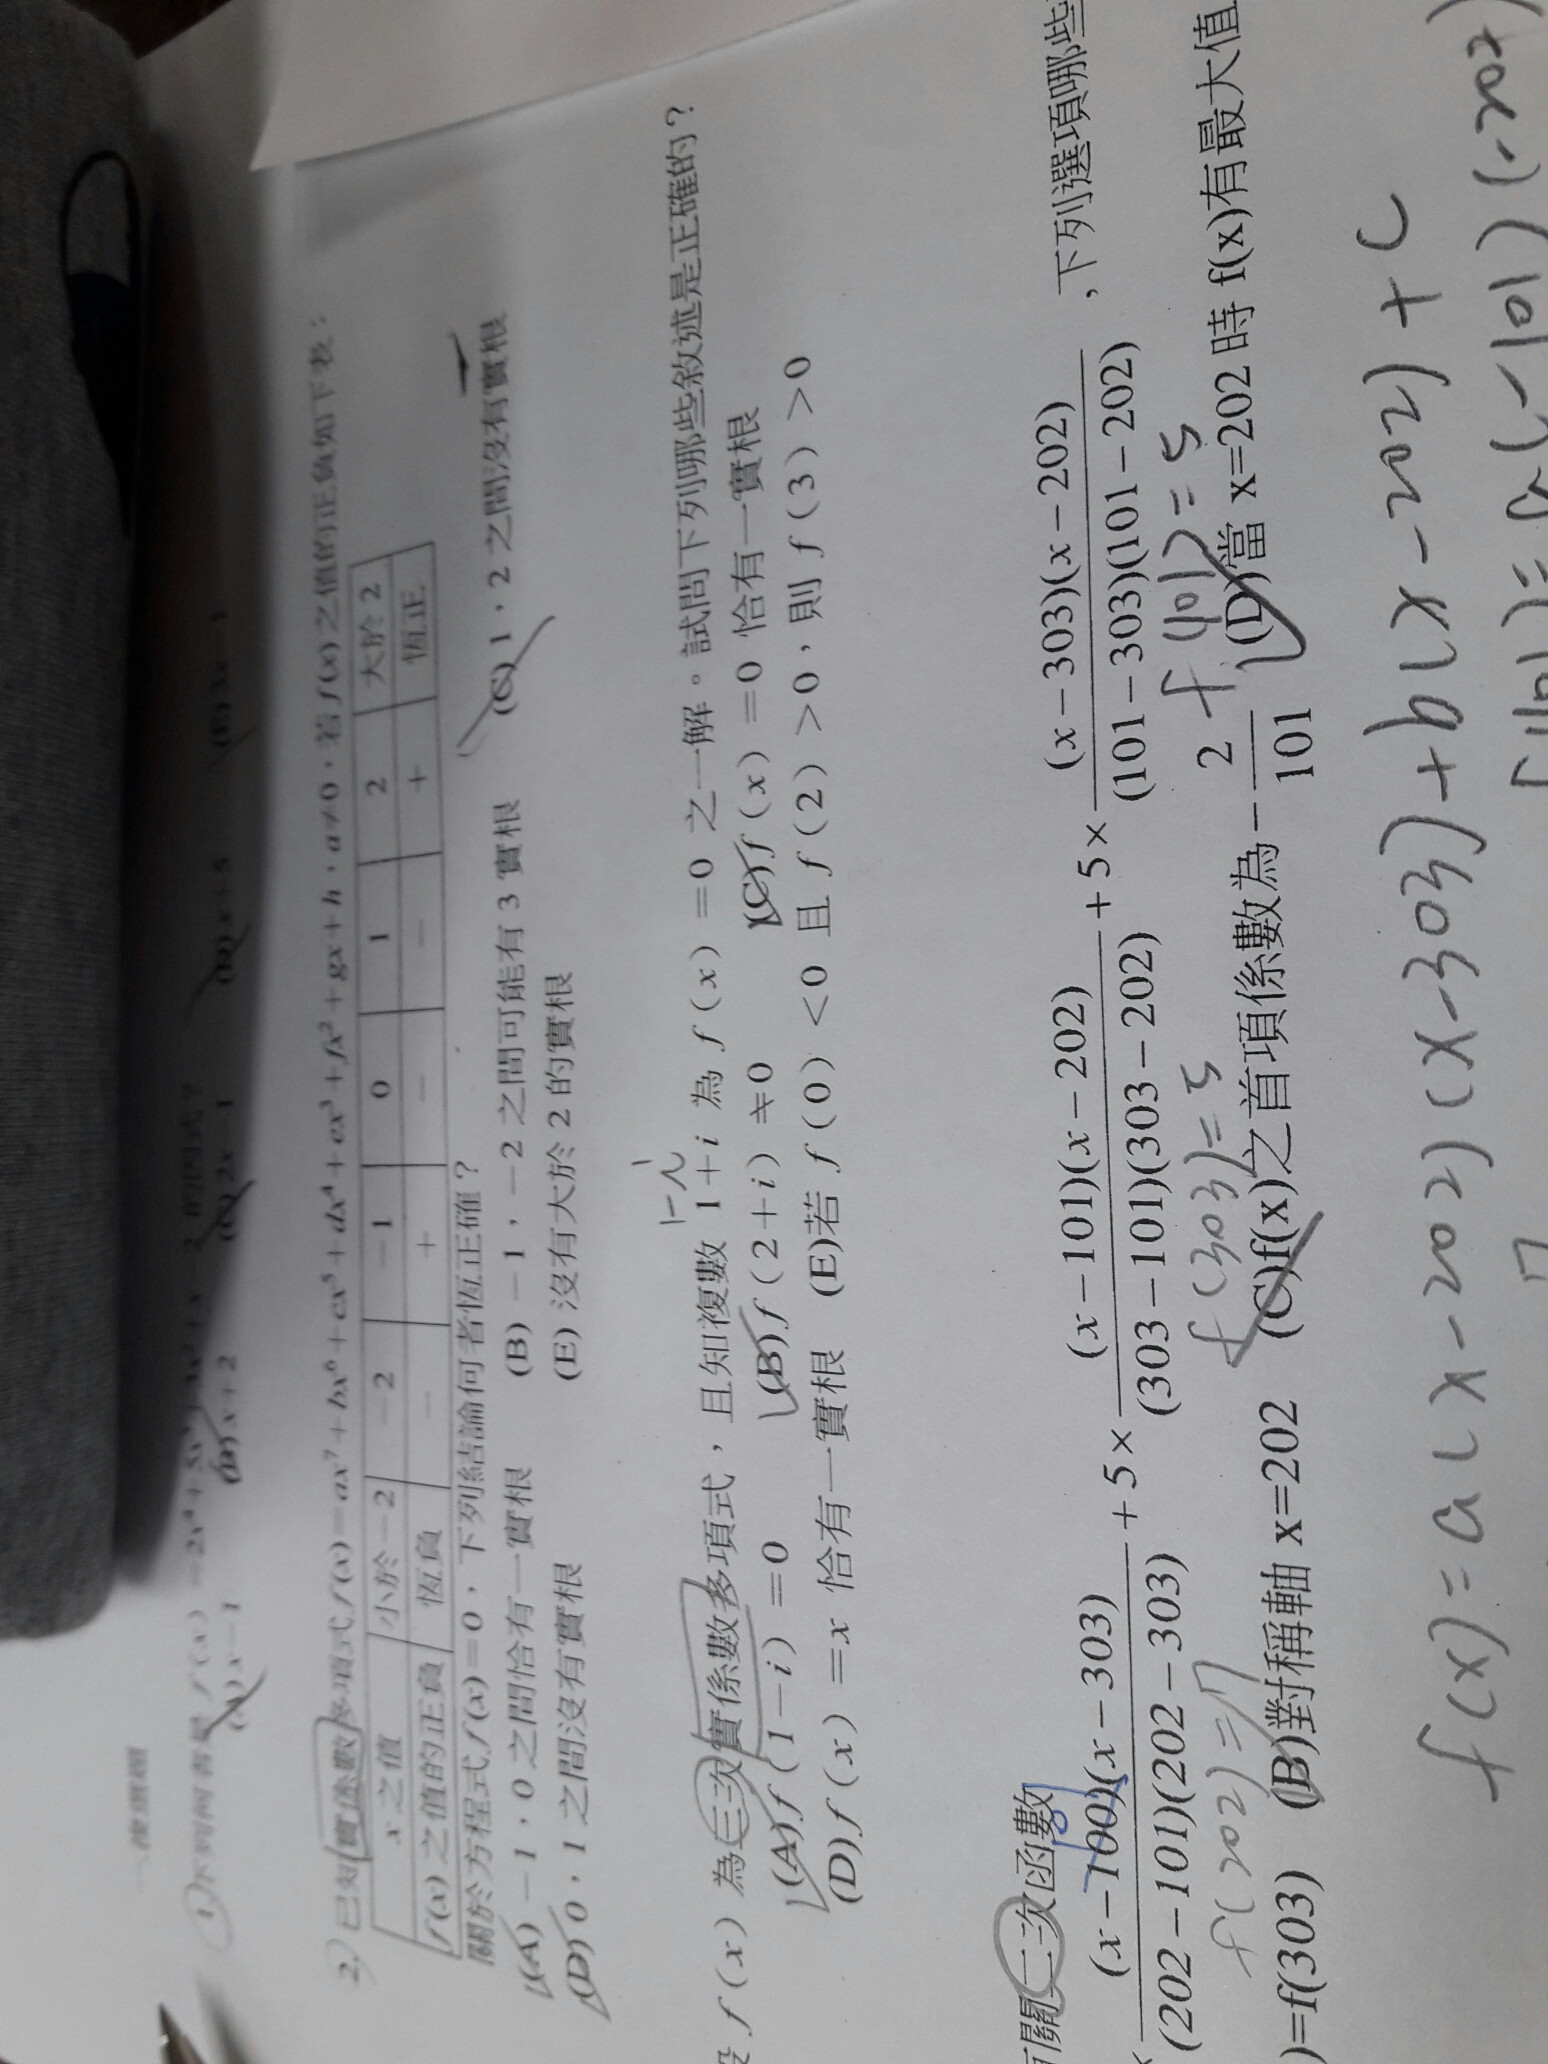 一、複選題
1. 下列何者是 f(x)=-2x⁴+5x³ 的因式?
(A) x-1 (B) x+2 (C) 2x-1 (D) x+5 (E) 3x-1
2. 已知實係數多項式 f(x)=ax⁷+bx⁶+cx⁵+dx⁴+ex³+fx²+gx+h,a≠0,若 f(x) 之值的正負如下表:
x 之值 小於-2 -2 -1 0 1 2 大於2
f(x) 之值的正負 恆負 - + - - + 恆正
關於方程式 f(x)=0,下列結論何者恆正確?
(A) -1,0 之間恰有一實根 (B) -1,-2 之間可能有 3 實根 (C) 1,2 之間沒有實根
(D) 0,1 之間沒有實根 (E) 沒有大於 2 的實根
1-i
設 f(x) 為三次實係數多項式,且知複數 1+i 為 f(x)=0 之一解。試問下列哪些敘述是正確的?
(A) f(1-i)=0 (B) f(2+i)≠0 (C) f(x)=0 恰有一實根
(D) f(x)=x 恰有一實根 (E)若 f(0)<0 且 f(2)>0,則 f(3)>0
有關二次函數
(x-100)(x-303)/(202-101)(202-303) +5× (x-101)(x-202)/(303-101)(303-202) +5× (x-303)(x-202)/(101-303)(101-202) ,下列選項哪些
101
f(202)=7 f(303)=5 f(101)=5
)=f(303) (B)對稱軸 x=202 (C)f(x)之首項係數為-2/101 (D)當 x=202 時 f(x)有最大值
f(x)=a(x-202)(x-303)+b(x-202)+c